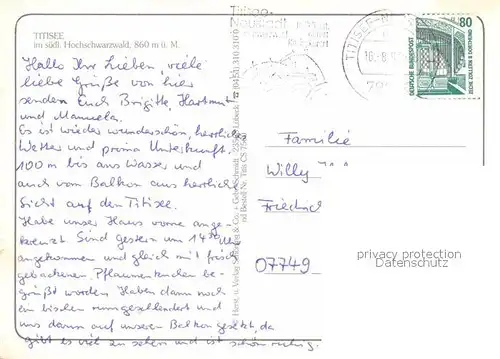 TITISEE
im südl. Hochschwarzwald, 860 m ü. M.
Hallo Ihr Lieben, viele
liebe Grüße von hier
senden Euch Brigitte, Hartmut
und Manuela.
Es ist wieder wunderschön, herrliches
Wetter und prima Unterkunft.
100 m bis ans Wasser und
auch vom Balkon aus herrliche
Sicht auf den Titisee.
Habe unser Haus vorne ange-
kreuzt. Sind gestern um 14
angekommen und gleich mit frisch
gebackenen Pflaumenkuchen be-
grüßt worden. Haben dann noch
ein bischen rumgeschlendert und
uns dann auf unseren Balkon gesetzt, da
gibt es viel zu sehen und ist schön ruhig.
Titisee-
Neustadt
TITISEE-N
80
DEUTSCHE BUNDESPOST
ZECHE ZOLLERN II DORTMUND
Familie
Willy
Friedhof
07749
privacy protection
Datenschutz